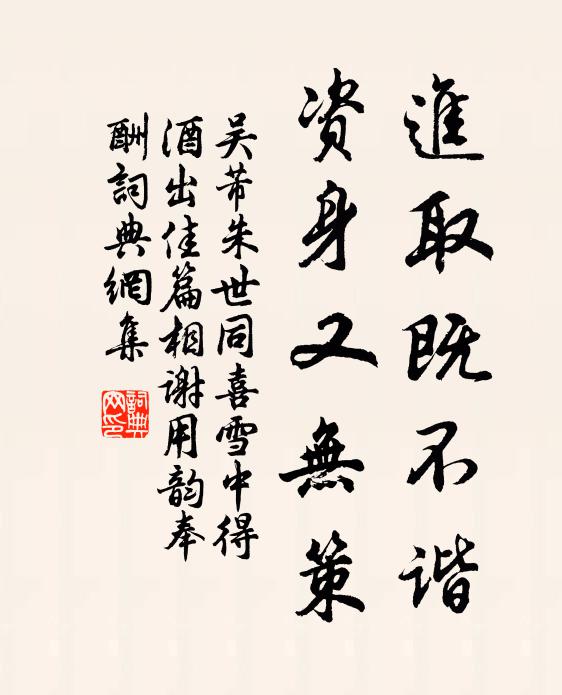 進取既不谐
资身又無策
吴芾朱世同喜雪中得
酒出佳篇相谢用韵奉
酬詞典網集
詞典
网印